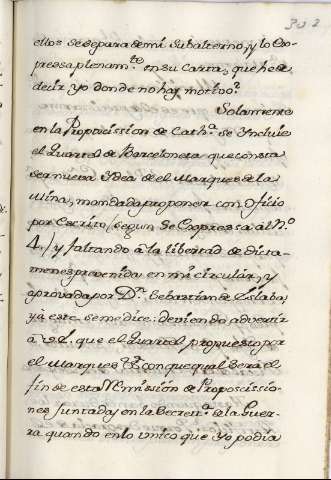 302
ellos se separa de mi Subalterno, y lo ex-
pressa plenam.te en su Carta, que he de
decir yo donde no hay motivo?
Solamente
en la Proposission de Cath.a se incluie
el Quartel de Barceloneta que consta
ser nueva Ydea de el Marques de la
Mina, mandada proponer con oficio
por Escrito (segun se Expressa al N.o
4.) y faltando à la libertad de dicta-
menes prevenida en mi circular, y
aprovada por D.n Sebastian de Eslaba,
yà este se me dice: deviendo advertir
à V.E. que el Quartel propuesto por
el Marques
con que qual será el
fin de esta Remission de Proposissio-
nes juntadas en la Secret.a de la Guer-
ra quando en lo unico que yo podia